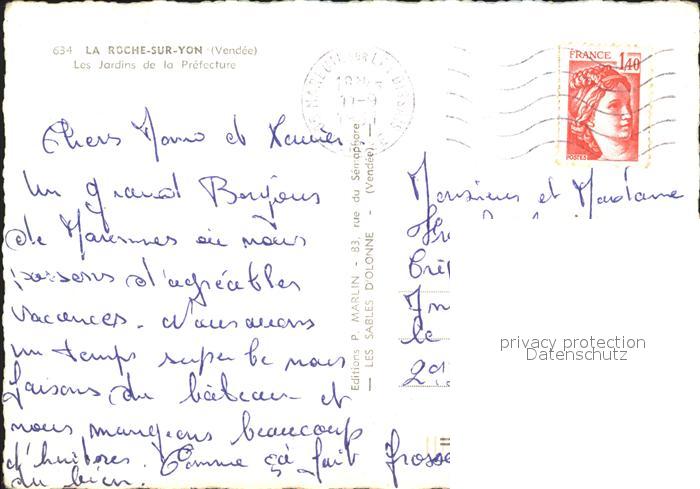 634 LA ROCHE-SUR-YON (Vendée)
Les Jardins de la Préfecture
FRANCE
1,40
POSTES
Chers Momo et Xavier
Un grand Bonjour
de Marennes où nous
passons d'agréables
vacances. Nous avons
un temps superbe nous
faisons du bâteau et
nous mangeons beaucoup
d'huitres. Comme ça fait
du bien.
Grosse
Editions P. MARLIN - 83, rue du Sémaphore
— LES SABLES D'OLONNE - (Vendée) —
Monsieur et Madame
le
privacy protection
Datenschutz